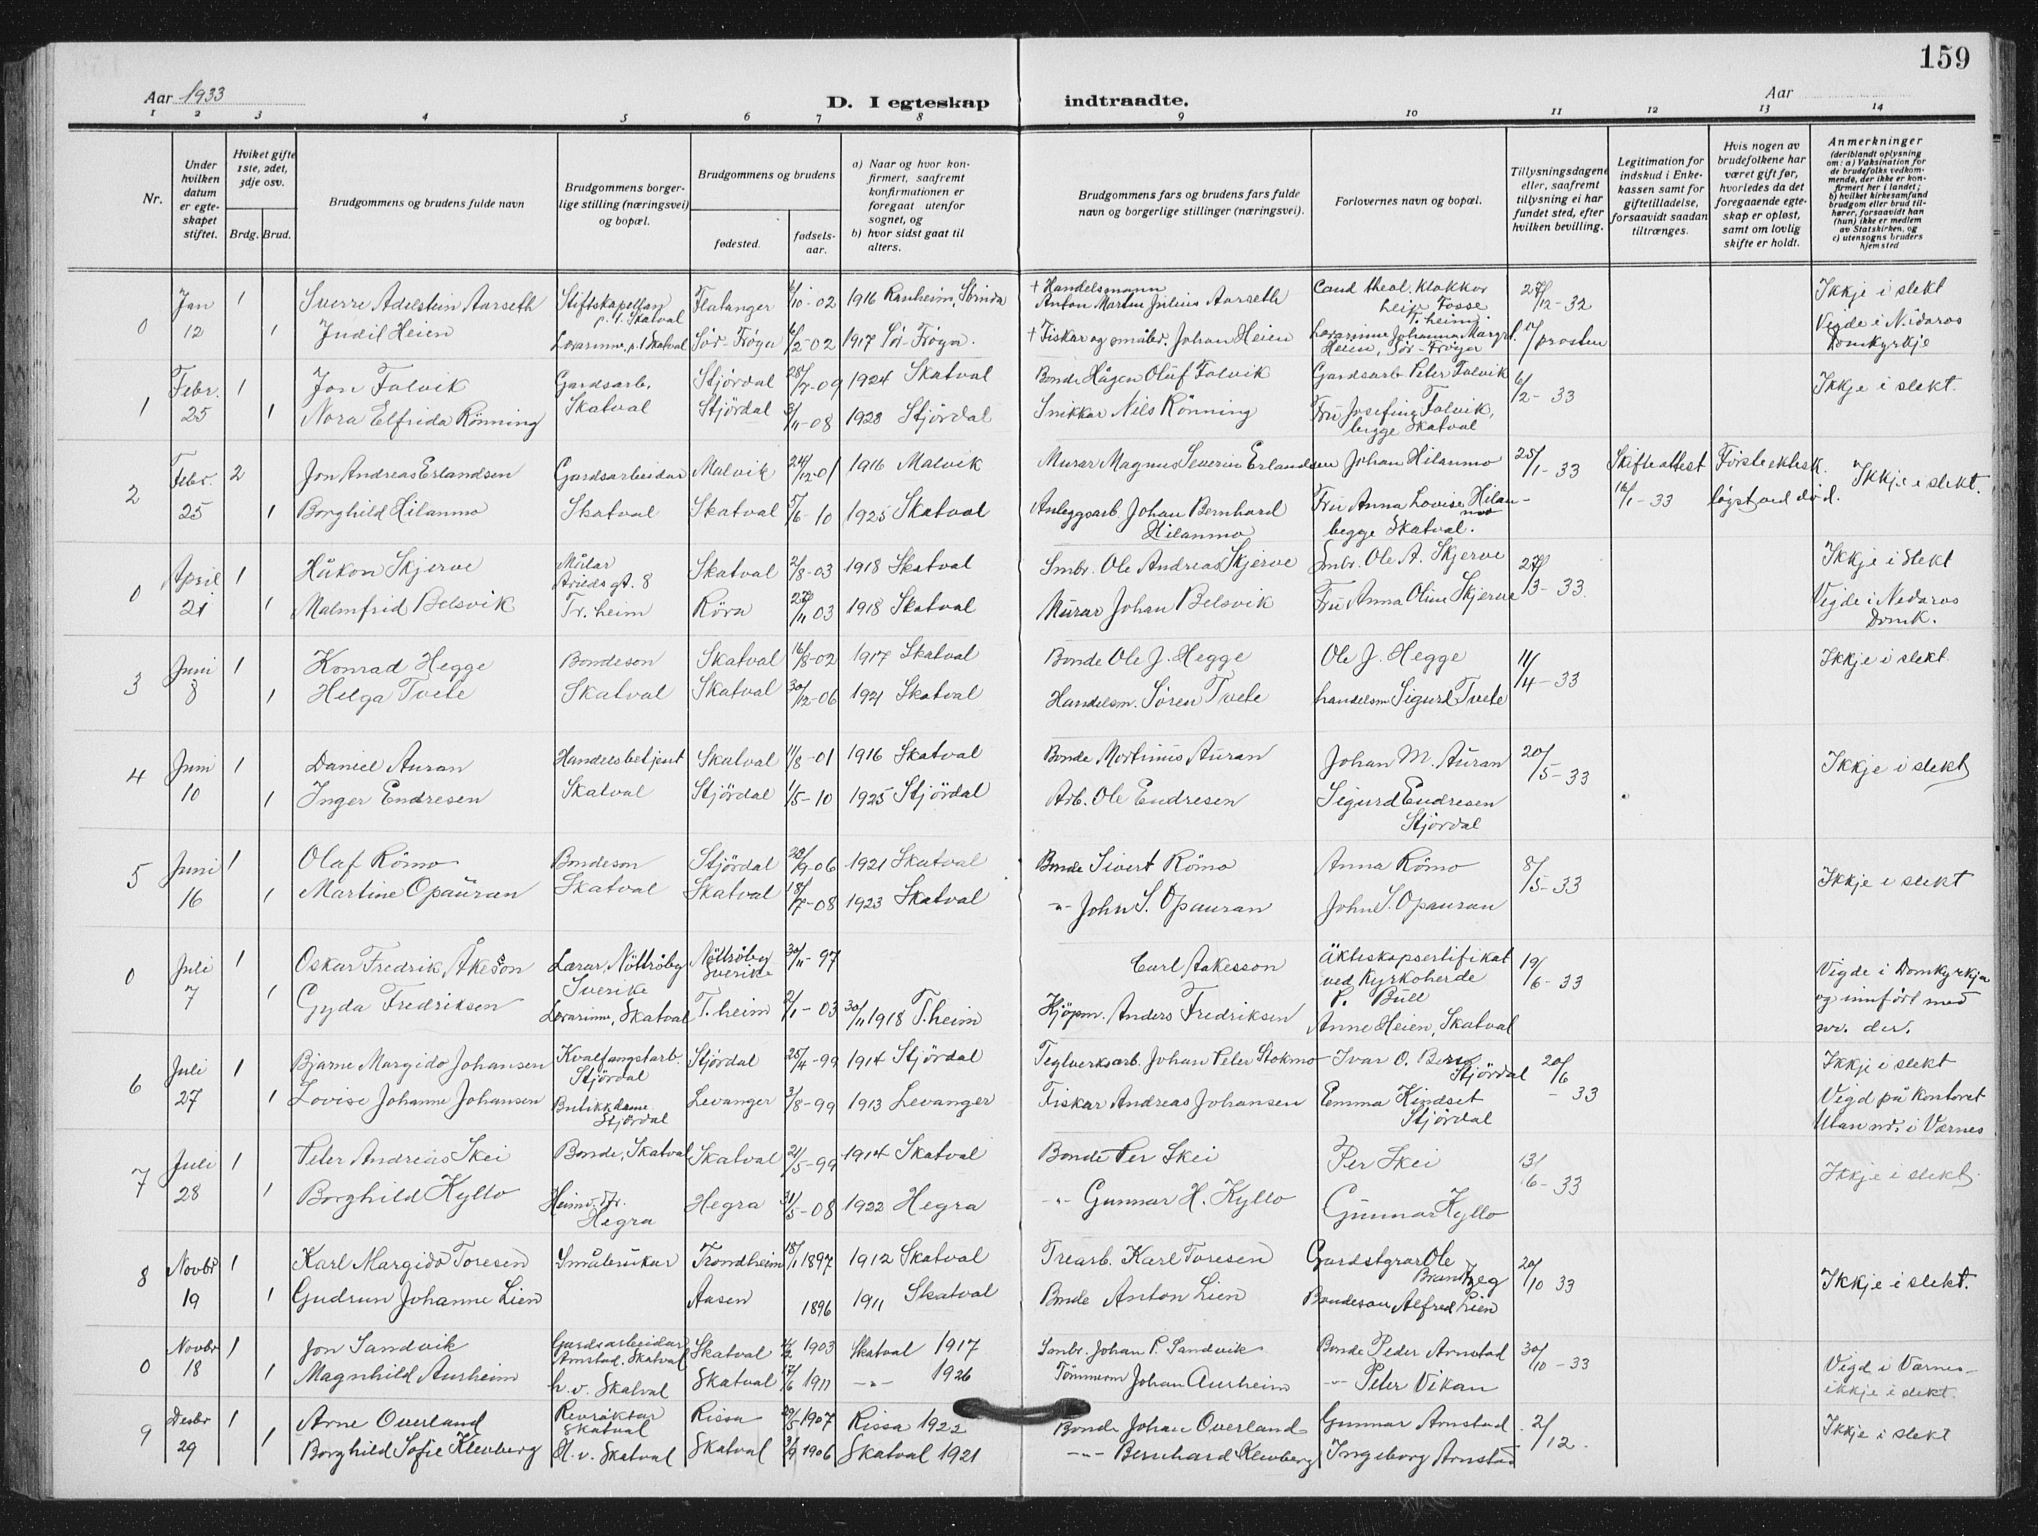 159
Aar 1933
D. I egteskap
indtraadte.
Aar
1 2 3 4 5 6 7 8 9 10 11 12 13 14
Nr.
Under hvilken datum er egteskapet stiftet.
Hviket gifte 1ste, 2det, 3dje osv.
Brdg. Brud.
Brudgommens og brudens fulde navn
Brudgommens borgerlige stilling (næringsvei) og bopæl.
Brudgommens og brudens
fødested.
fødselsaar.
a) Naar og hvor konfirmert, saafremt konfirmationen er foregaat utenfor sognet, og
b) hvor sidst gaat til alters.
Brudgommens fars og brudens fars fulde navn og borgerlige stillinger (næringsvei).
Forlovernes navn og bopæl.
Tillysningsdagene eller, saafremt tillysning ei har fundet sted, efter hvilken bevilling.
Legitimation for indskud i Enkekassen samt for giftetilladelse, forsaavidt saadan tiltrænges.
Hvis nogen av brudefolkene har været gift før, hvorledes da det foregaaende egteskap er opløst, samt om lovlig skifte er holdt.
Anmerkninger (deriblandt oplysning om: a) Vaksination for de brudefolks vedkommende, der ikke er konfirmert her i landet; b) hvilket kirkesamfund brudgom eller brud tilhører, forsaavidt han (hun) ikke er medlem av Statskirken, og c) utensogns bruders hjemsted
0 Jan 12 1 Sverre Adelstein Aarseth Stiftskapellan p.t. Skatval Flatanger 6/10-02 1916 Ranheim, Strinda + Handelsmann Anton Martin Julius Aarseth Cand theol. klokkar Leif Fosse T.heim. 27/12-32 Ikkje i slekt
1 Judit Heien Lærarinne, p.t Skatval Sør-Frøya 6/2-02 1917 Sør-Frøya. + Fiskar og småbr. Johan Heien Lærarinne Johanna Margr. Heien, Sør-Frøya prosten Vigde i Nidaros Domkyrkje
1 Febr. 25 1 Jon Falvik Gardsarb. Stjørdal 28/7-09 1924 Skatval Bonde Hågen Oluf Falvik Gardsarb Peter Falvik 6/2-33 Ikkje i slekt.
1 Nora Elfrida Rønning Skatval Stjördal 3/11-08 1923 Stjördal Snikkar Nils Rønning Fru Josefine Falvik, begge Skatval
2 Febr. 25 2 Jon Andreas Erlandsen Gardsarbeidar Malvik 24/12-01 1916 Malvik Murar Magnus Severin Erlandsen Johan Hilanmo 25/1-33 Skifteattest 16/1-33 Förste ektesk. löyst ved död. Ikkje i slekt.
1 Borghild Hilanmo Skatval Skatval 5/6-10 1925 Skatval Anleggsarb Johan Bernhard Hilanmo Fru Anna Lovise Hilanmo begge Skatval.
0 April 21 1 Håkon Skjerve Målar Arilds gt. 8 Skatval 2/8-03 1918 Skatval Smbr. Ole Andreas Skjerve Smbr. Ole A. Skjerve 27/3-33. Ikkje i slekt
1 Malmfrid Belsvik Tr.heim Röra 27/11 03 1918 Skatval Murar Johan Belsvik Fru Anna Oline Skjerve Vigde i Nidaros Domk.
3 Juni 8 1 Konrad Hegge Bondeson Skatval 16/8-02 1917 Skatval Bonde Ole J. Hegge Ole J. Hegge 11/4-33 Ikkje i slekt
1 Helga Tvete Skatval Skatval 30/12-06 1921 Skatval Handelsm. Sören Tvete handelsm Sigurd Tvete
4 Juni 10 1 Daniel Auran Handelsbetjent Skatval 11/8-01 1916 Skatval Bonde Mortinus Auran Johan M. Auran 20/5-33 Ikkje i slekt
1 Inger Endresen Skatval Stjördal 1/5-10 1925 Stjördal Arb. Ole Endresen Sigurd Endresen Stjördal
5 Juni 16 1 Olaf Römo Bondeson Stjördal 23/9-06 1921 Skatval Bonde Sivert Römo Anna Römo 8/5-33 Ikkje i slekt
1 Martine Opauran Skatval Skatval 18/7-08 1923 Skatval -"- John S. Opauran John S. Opauran
0 Juli 7 1 Oskar Fredrik Åkesson Lærar, Nöttråby Sverike Nöttråby Sverike 30/11-97 Carl Aakesson Äktiskapsertifikat ved Kyrkoherde P. Bull 19/6-33 Vigde i Domkyrkja
1 Gyda Fredriksen Lærarinne, Skatval T.heim 2/1-03 30/11 1918 T.heim Kjöpm. Anders Fredriksen Anne Heien, Skatval og innfört med nr. der.
6 Juli 27 1 Bjarne Margido Johansen Kvalfangstarb. Stjördal Stjördal 25/4-99 1914 Stjördal Teglverksarb. Johan Peter Stokmo Ivar O. Berg Stjördal 20/6-33 Ikkje i slekt
1 Lovise Johanne Johansen Butikkdame Stjördal Levanger 3/8-99 1913 Levanger Fiskar Andreas Johansen Emma Kindset Stjördal Vigd på kontoret Utan nr. i Værnes
7 Juli 28 1 Peter Andreas Skei Bonde, Skatval Skatval 21/5-99 1914 Skatval Bonde Per Skei Per Skei 13/6-33 Ikkje i slekt.
1 Borghild Kyllo Hegra Hegra 31/5-08 1922 Hegra -"- Gunnar H. Kyllo Gunnar Kyllo
8 Novbr 19 1 Karl Margido Toresen Småbrukar Trondheim 18/1 1897 1912 Skatval Trearb. Karl Toresen Gardstyrar Ole Brandtzeg 20/10 33 Ikkje i slekt.
1 Gudrun Johanne Lien Aasen 1896 1911 Skatval Bonde Anton Lien Bondeson Alfred Lien
0 Novbr 18 1 Jon Sandvik Gardsarbeidar Arnstad, Skatval Skatval 1903 Skatval 1917 Smbr. Johan P. Sandvik Bonde Peder Arnstad 30/10-33 Vigd i Værnes
1 Magnhild Aurheim h.v. Skatval Skatval 17/6 1911 -"- 1926 Tömmerm Johan Aurheim -"- Peter Vikan ikkje i slekt.
9 Desbr 29 1 Arne Overland Revröktar Skatval Rissa 20/5 1907 Rissa 1922 Bonde Johan Overland Gunnar Arnstad 2/12. Ikkje i slekt
1 Borghild Sofie Klevberg H.v. Skatval Skatval 3/9 1906 Skatval 1921 -"- Bernhard Klevberg Ingeborg Arnstad